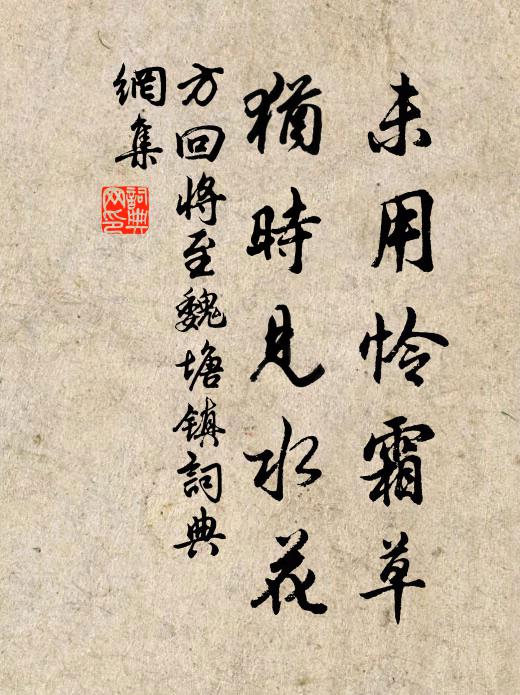 未用怜霜草
猶時見水花
方回将至魏塘镇詞典
網集
詞典網印